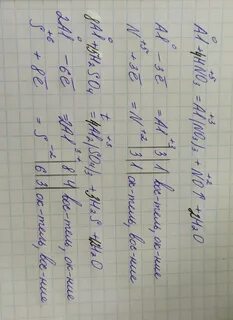 Al⁰ + 4HN⁺⁵O₃ = Al⁺³(NO₃)₃ + N⁺²O↑ + 2H₂O
Al⁰ - 3ē = Al⁺³ | 3 | 1 вос-тель, ок-ние
N⁺⁵ + 3ē = N⁺² | 3 | 1 ок-тель, вос-ние
8Al⁰ + 15H₂SO₄ = 4Al₂⁺³(SO₄)₃ + 3H₂S + 12H₂O
2Al⁰ - 6ē = 2Al³⁺ | 8 | 4 вос-тель, ок-ние
S⁺⁶ + 8ē = S⁻² | 6 | 3 ок-тель, вос-ние